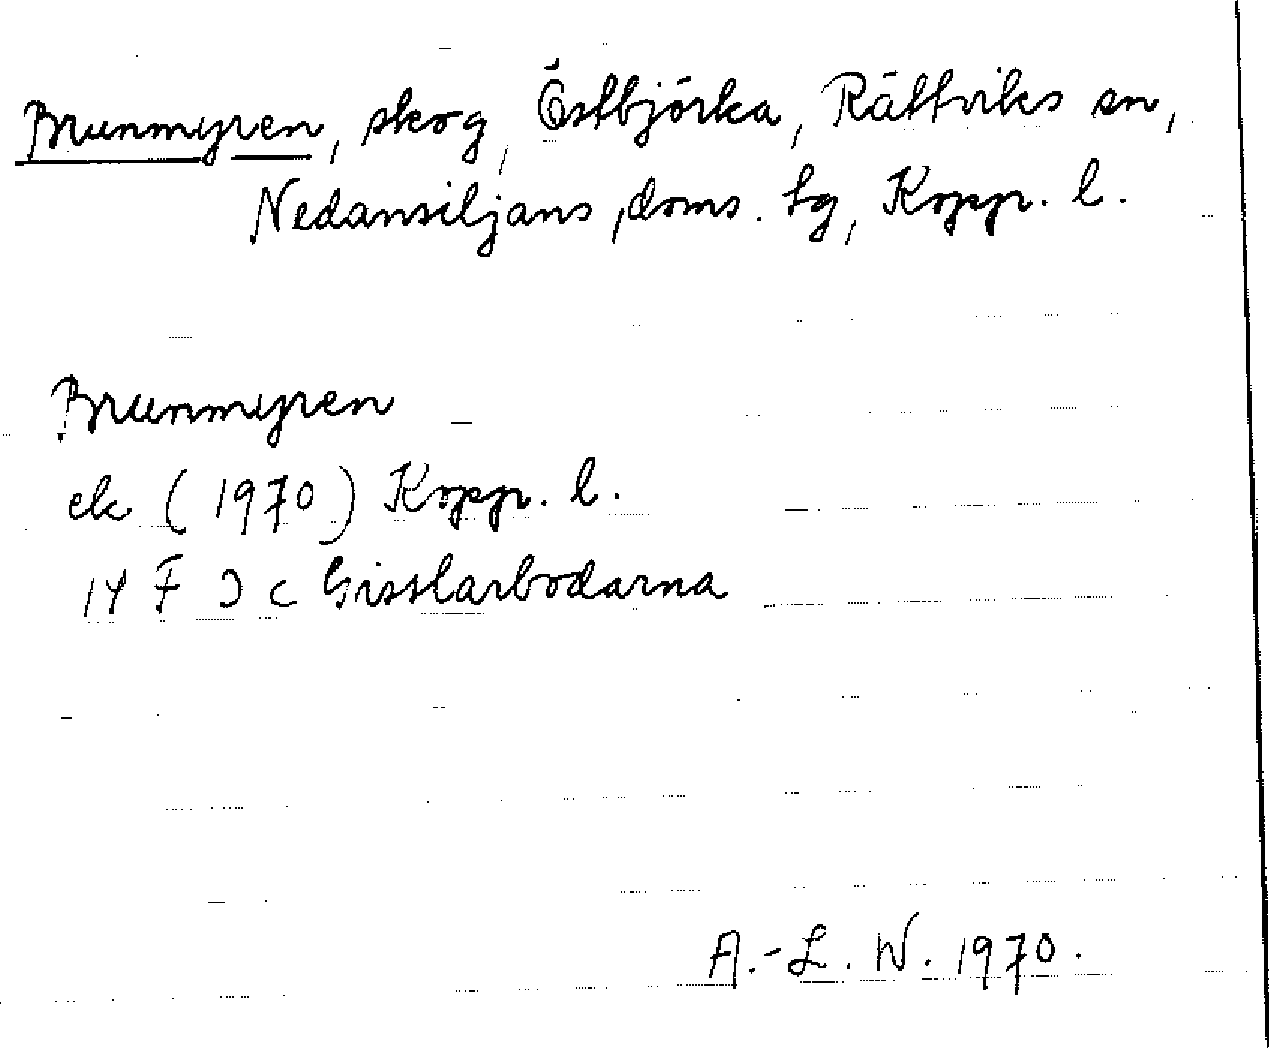 Brunmyren, skog, Östbjörka, Rättviks sn,
Nedansiljans doms. tg, Kopp. l.
Brunmyren
ek (1970) Kopp. l.
14 F J c Gisslarbodarna
A.-L. W. 1970.